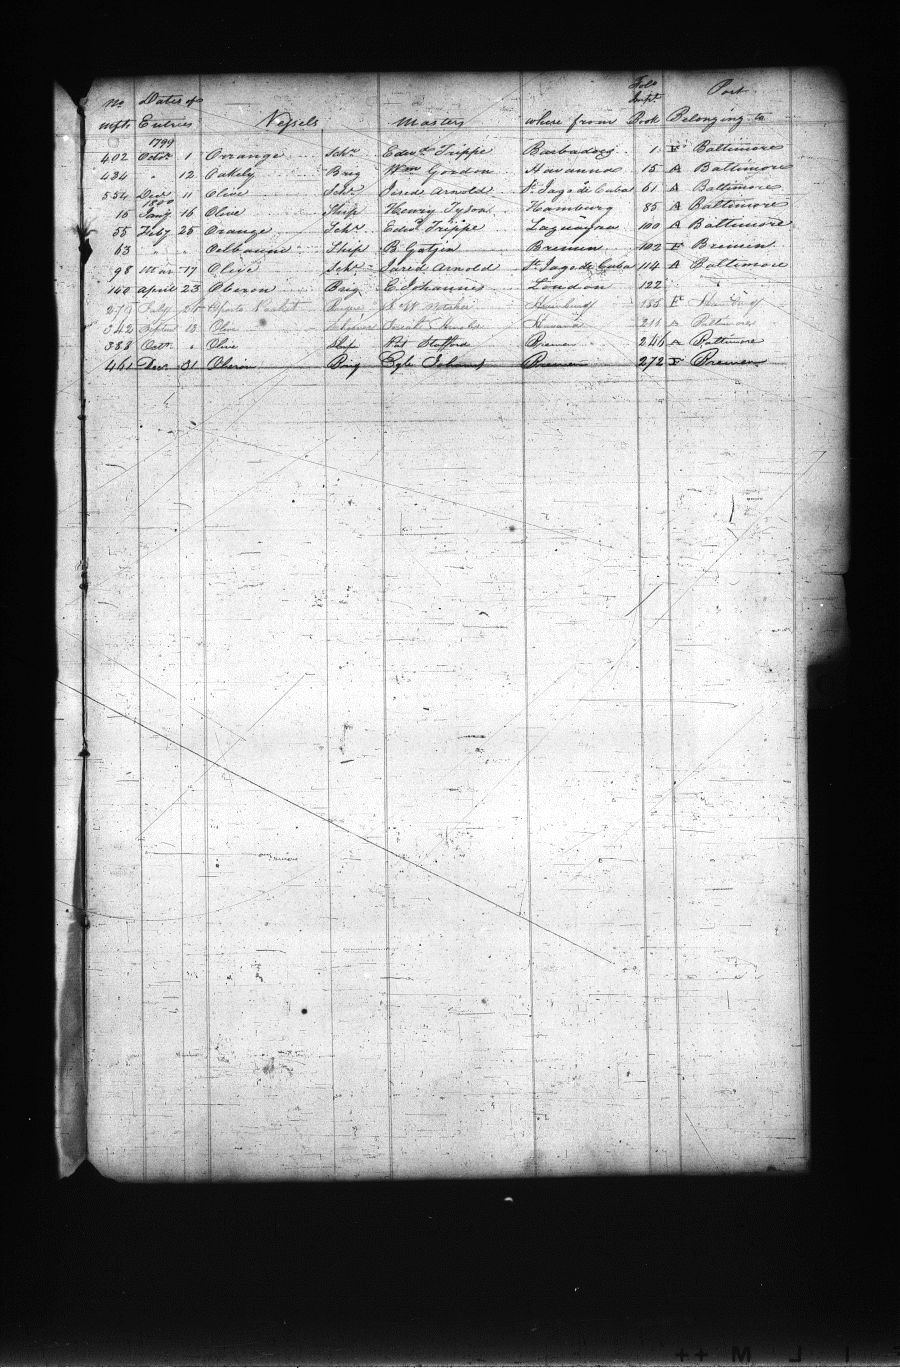 No Dates of Vessels Masters where from Folo Impt Book Port Belonging to
mfts Entries
1799
402 Octr 1 Orrange Schr Edwd Trippe Barbadoes 1 F Baltimore
434 " 12 Oakely Brig Wm Gordon Havanna 15 A Baltimore
554 Decr 11 Olive Schr Jared Arnold St Jago de Cuba 61 A Baltimore
1800
15 Jany 16 Olive Ship Henry Tyson Hamburg 85 A Baltimore
55 Feby 25 Orange Schr Edwd Trippe Laguayra 100 A Baltimore
63 " " Ship B Gatjin Bremen 102 F Bremen
98 Mar 17 Olive Schr Jared Arnold St Jago de Cuba 114 A Baltimore
140 April 23 Oberon Brig E Johannis London 122
274 July 24 Oporto Packet 185 F
342 Septem 13 Olive Schooner Arnold Havana 211 A Baltimore
388 Octr " Olive Ship Stafford Bremen 246 A Baltimore
461 Decr 31 Oberon Brig Bremen 272 F Bremen